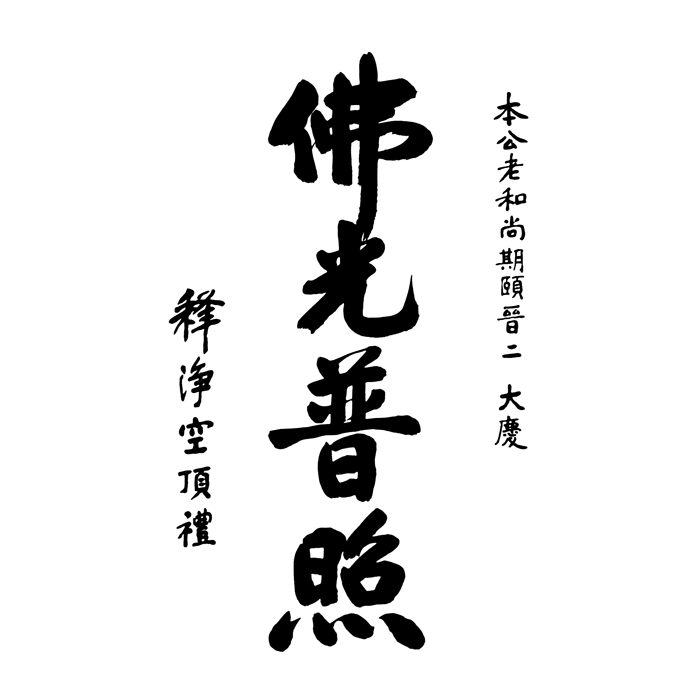 本公老和尚期頤晉二 大慶
佛光普照
釋淨空頂禮